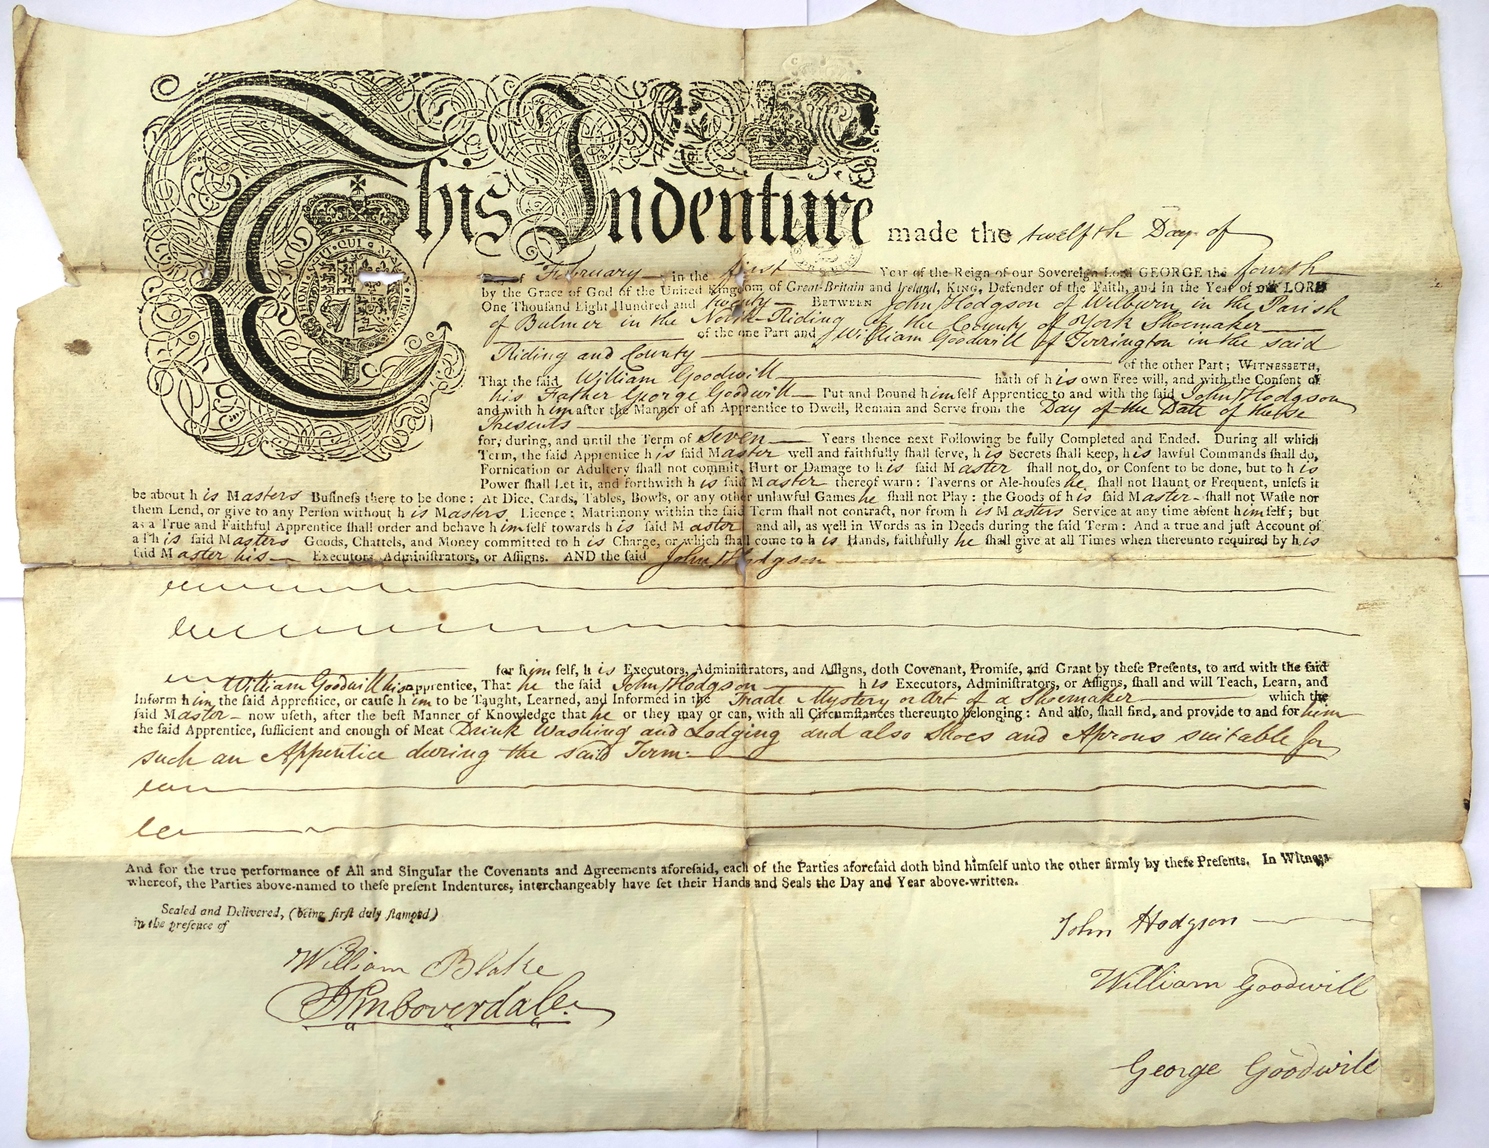 This Indenture made the twelfth Day of
of February in the first Year of the Reign of our Sovereign Lord GEORGE the fourth
by the Grace of God of the United Kingdom of Great-Britain and Ireland, KING, Defender of the Faith, and in the Year of our LORD
One Thousand Eight Hundred and twenty BETWEEN John Hodgson of Wilburn in the Parish
of Bulmer in the North-Riding of the County of York Shoemaker
of the one Part and William Goodwill of Terrington in the said
Riding and County of the other Part; WITNESSETH,
That the said William Goodwill hath of his own Free will, and with the Consent of
his Father George Goodwill Put and Bound himself Apprentice to and with the said John Hodgson
and with him after the Manner of an Apprentice to Dwell, Remain and Serve from the Day of the Date of these
Presents
for, during, and until the Term of Seven Years thence next Following be fully Completed and Ended. During all which
Term, the said Apprentice his said Master well and faithfully shall serve, his Secrets shall keep, his lawful Commands shall do,
Fornication or Adultery shall not commit, Hurt or Damage to his said Master shall not do, or Consent to be done, but to his
Power shall Let it, and forthwith his said Master thereof warn: Taverns or Ale-houses he shall not Haunt or Frequent, unless it
be about his Masters Business there to be done: At Dice, Cards, Tables, Bowls, or any other unlawful Games he shall not Play: the Goods of his said Master shall not Waste nor
them Lend, or give to any Person without his Masters Licence: Matrimony within the said Term shall not contract, nor from his Masters Service at any time absent himself; but
as a True and Faithful Apprentice shall order and behave himself towards his said Master and all, as well in Words as in Deeds during the said Term: And a true and just Account of
all his said Masters Goods, Chattels, and Money committed to his Charge, or which shall come to his Hands, faithfully he shall give at all Times when thereunto required by his
said Master his Executors, Administrators, or Assigns. AND the said John Hodgson
for himself, his Executors, Administrators, and Assigns, doth Covenant, Promise, and Grant by these Presents, to and with the said
William Goodwill his apprentice, That he the said John Hodgson his Executors, Administrators, or Assigns, shall and will Teach, Learn, and
Inform him the said Apprentice, or cause him to be Taught, Learned, and Informed in the Trade Mystery or Art of a Shoemaker which the
said Master now useth, after the best Manner of Knowledge that he or they may or can, with all Circumstances thereunto belonging: And also, shall find, and provide to and for him
the said Apprentice, sufficient and enough of Meat Drink Washing and Lodging and also Shoes and Aprons suitable for
such an Apprentice during the said Term.
And for the true performance of All and Singular the Covenants and Agreements aforesaid, each of the Parties aforesaid doth bind himself unto the other firmly by these Presents. In Witness
whereof, the Parties above-named to these present Indentures, interchangeably have set their Hands and Seals the Day and Year above-written.
Sealed and Delivered, (being first duly stamped)
in the presence of
John Hodgson
William Blake
William Goodwill
George Goodwill